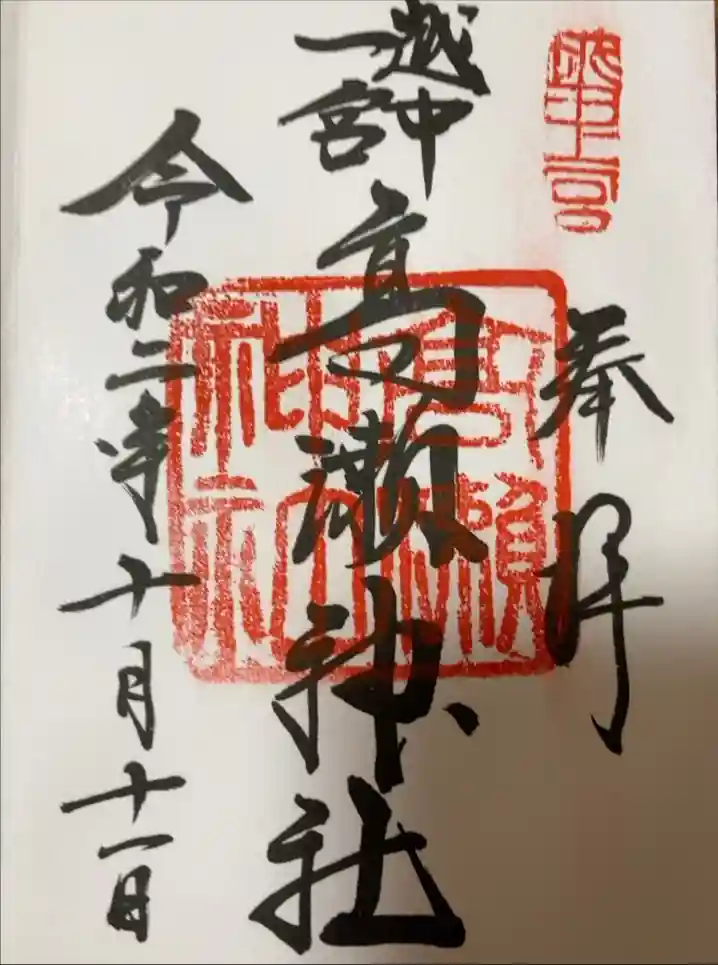 奉拝
越中
一宮
高瀬神社
高瀬
神社
令和二年十月十一日